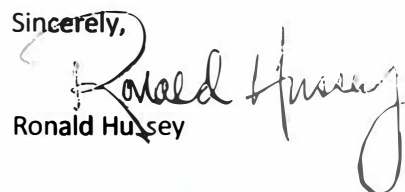 Sincerely,
Ronald Hussey
Ronald Hussey